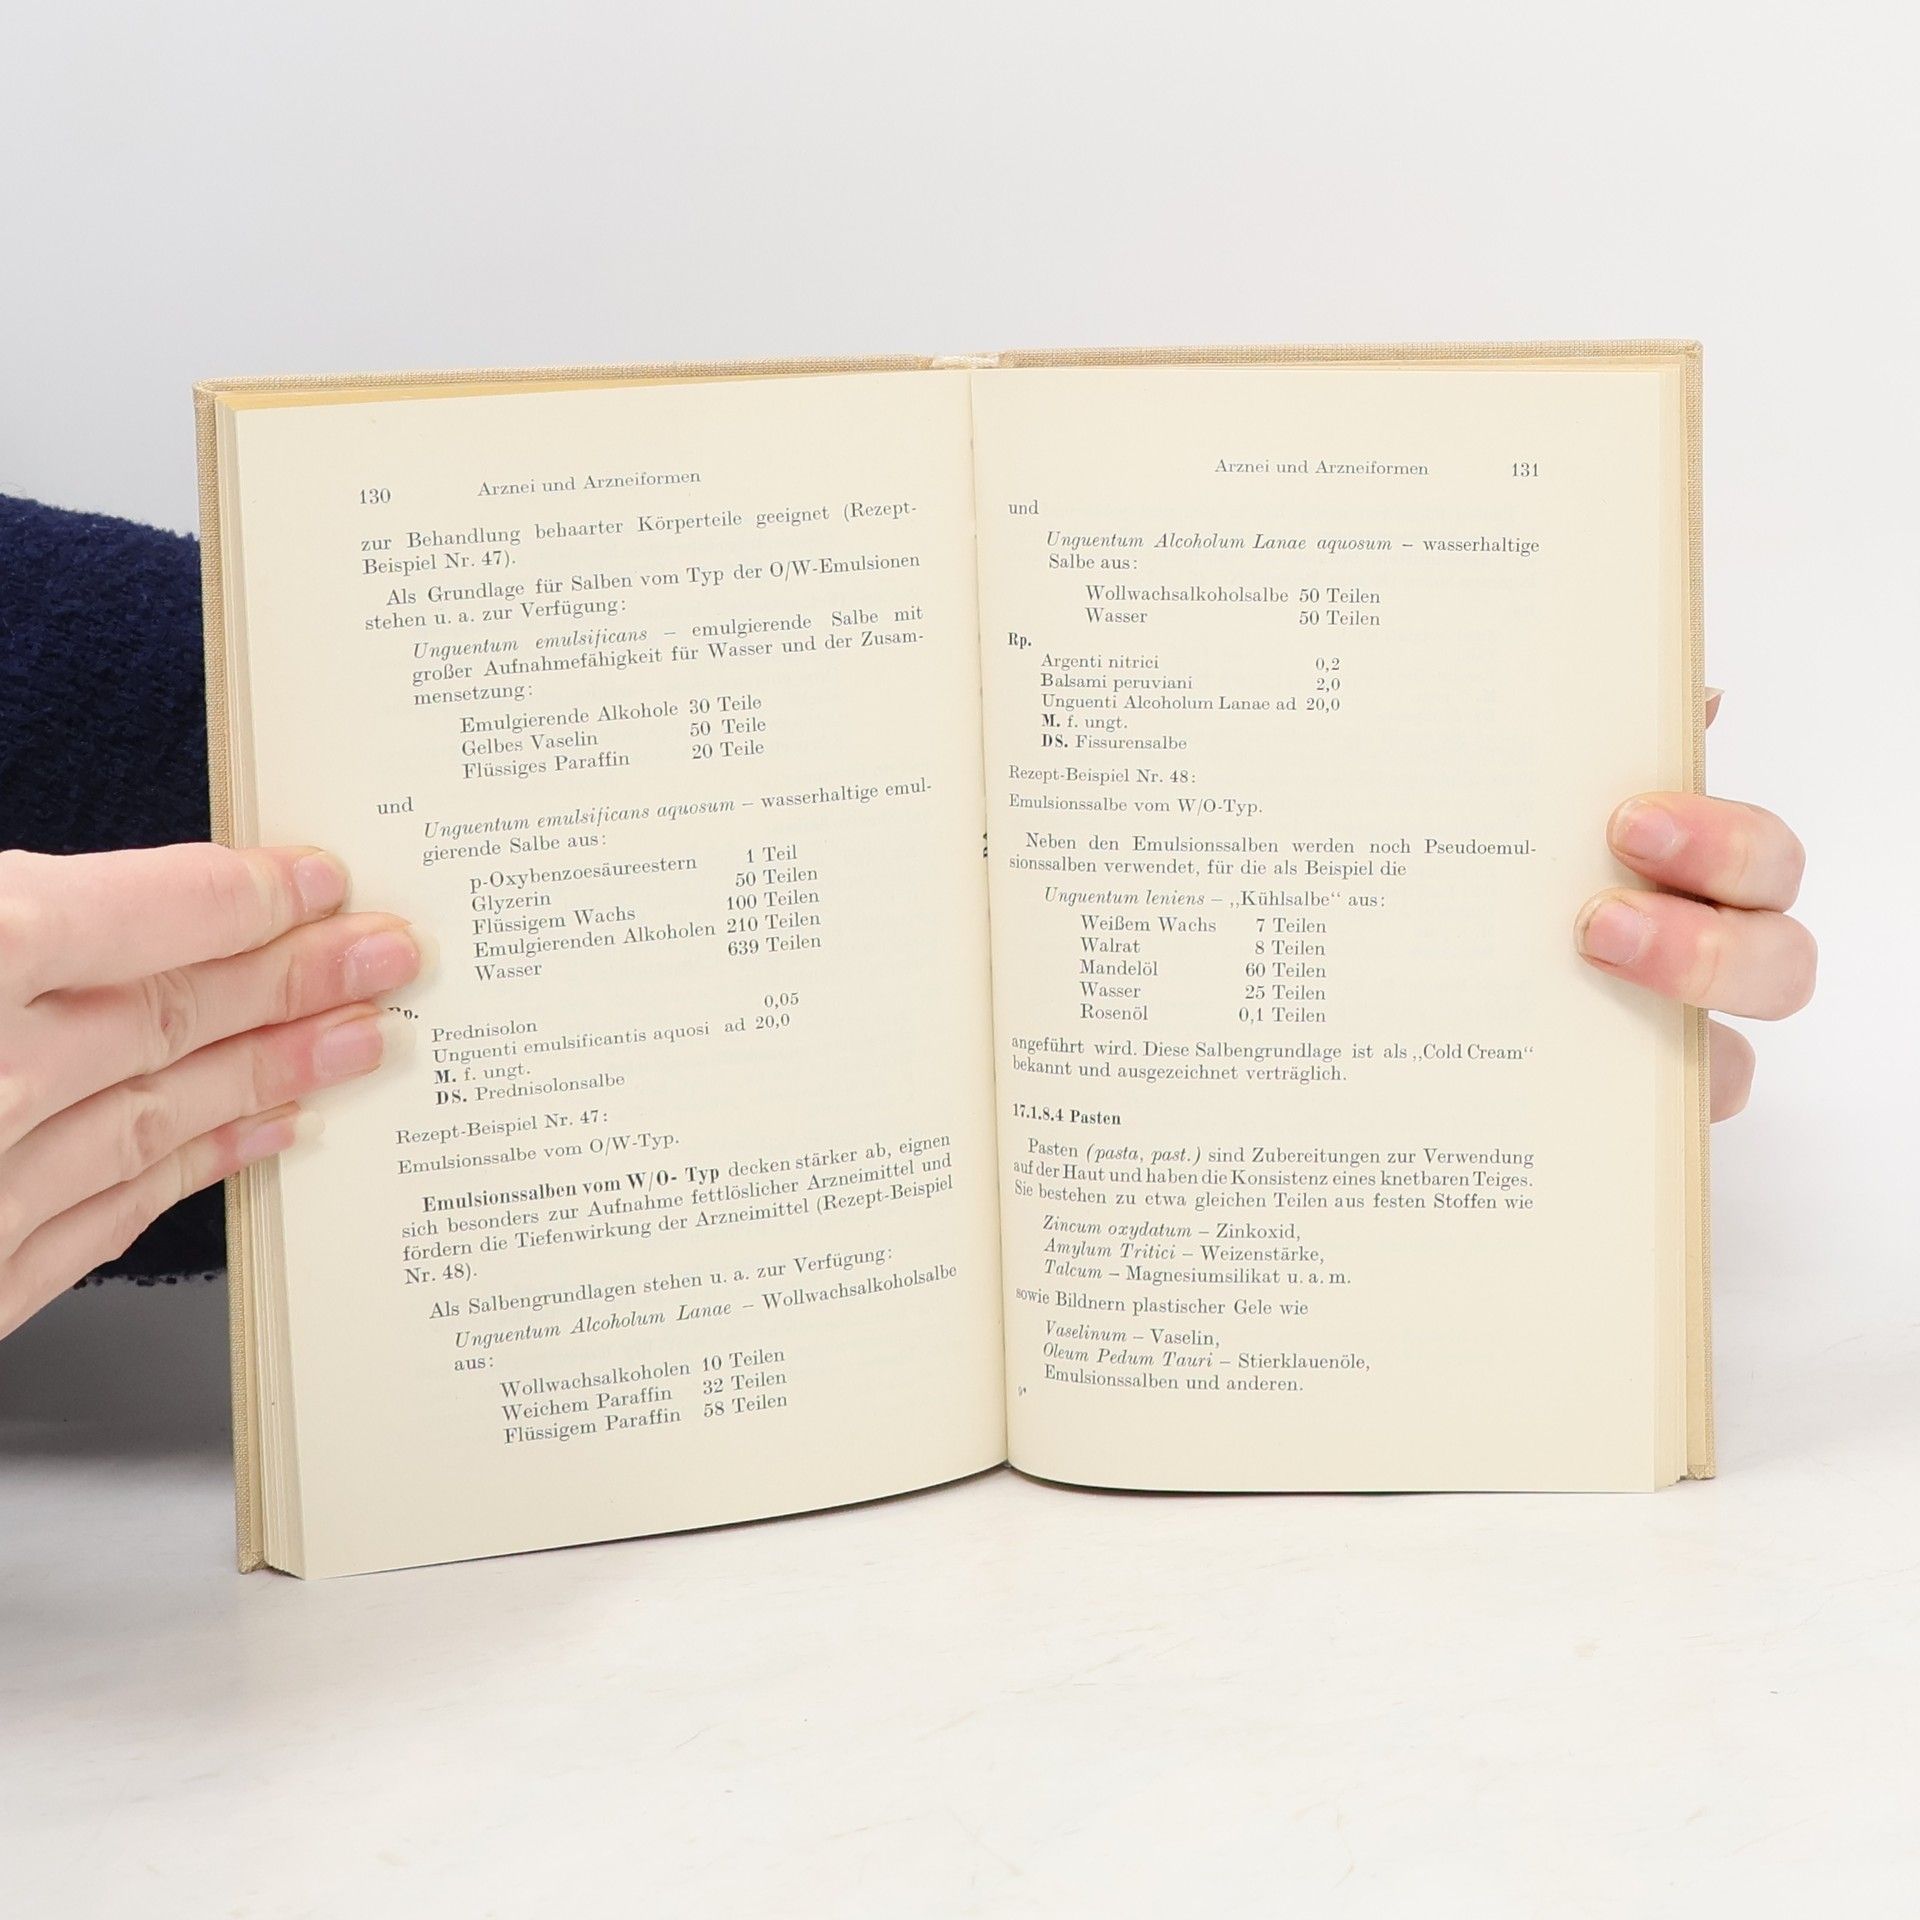 130 Arznei und Arzneiformen
zur Behandlung behaarter Körperteile geeignet (Rezept-
Beispiel Nr. 47).
Als Grundlage für Salben vom Typ der O/W-Emulsionen
stehen u. a. zur Verfügung:
Unguentum emulsificans – emulgierende Salbe mit
großer Aufnahmefähigkeit für Wasser und der Zusam-
mensetzung:
Emulgierende Alkohole 30 Teile
Gelbes Vaselin 50 Teile
Flüssiges Paraffin 20 Teile
und
Unguentum emulsificans aquosum – wasserhaltige emul-
gierende Salbe aus:
p-Oxybenzoesäureestern 1 Teil
Glyzerin 50 Teilen
Flüssigem Wachs 100 Teilen
Emulgierenden Alkoholen 210 Teilen
Wasser 639 Teilen
Rp.
Prednisolon 0,05
Unguenti emulsificantis aquosi ad 20,0
M. f. ungt.
DS. Prednisolonsalbe
Rezept-Beispiel Nr. 47:
Emulsionssalbe vom O/W-Typ.
Emulsionssalben vom W/O- Typ decken stärker ab, eignen
sich besonders zur Aufnahme fettlöslicher Arzneimittel und
fördern die Tiefenwirkung der Arzneimittel (Rezept-Beispiel
Nr. 48).
Als Salbengrundlagen stehen u. a. zur Verfügung:
Unguentum Alcoholum Lanae – Wollwachsalkoholsalbe
aus:
Wollwachsalkoholen 10 Teilen
Weichem Paraffin 32 Teilen
Flüssigem Paraffin 58 Teilen
Arznei und Arzneiformen 131
und
Unguentum Alcoholum Lanae aquosum – wasserhaltige
Salbe aus:
Wollwachsalkoholsalbe 50 Teilen
Wasser 50 Teilen
Rp.
Argenti nitrici 0,2
Balsami peruviani 2,0
Unguenti Alcoholum Lanae ad 20,0
M. f. ungt.
DS. Fissurensalbe
Rezept-Beispiel Nr. 48:
Emulsionssalbe vom W/O-Typ.
Neben den Emulsionssalben werden noch Pseudoemul-
sionssalben verwendet, für die als Beispiel die
Unguentum leniens – „Kühlsalbe“ aus:
Weißem Wachs 7 Teilen
Walrat 8 Teilen
Mandelöl 60 Teilen
Wasser 25 Teilen
Rosenöl 0,1 Teilen
angeführt wird. Diese Salbengrundlage ist als „Cold Cream“
bekannt und ausgezeichnet verträglich.
17.1.8.4 Pasten
Pasten (pasta, past.) sind Zubereitungen zur Verwendung
auf der Haut und haben die Konsistenz eines knetbaren Teiges.
Sie bestehen zu etwa gleichen Teilen aus festen Stoffen wie
Zincum oxydatum – Zinkoxid,
Amylum Tritici – Weizenstärke,
Talcum – Magnesiumsilikat u. a. m.
sowie Bildnern plastischer Gele wie
Vaselinum – Vaselin,
Oleum Pedum Tauri – Stierklauenöle,
Emulsionssalben und anderen.
9*